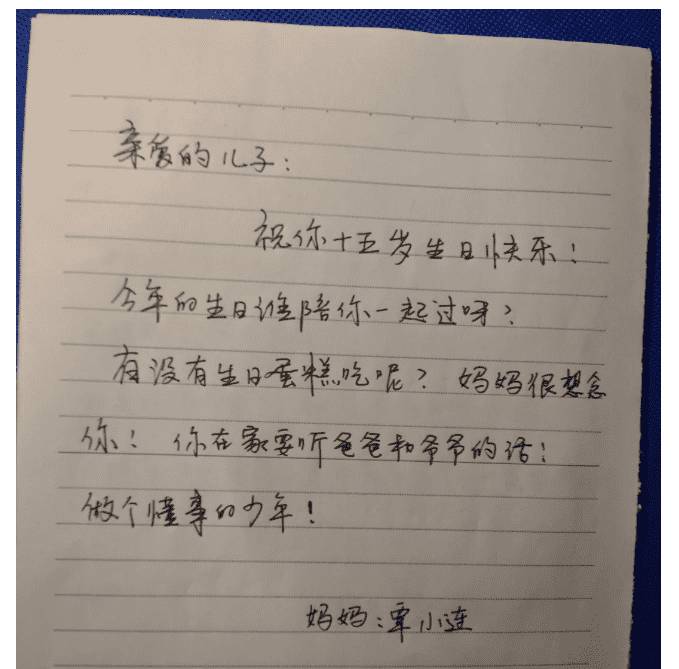 亲爱的儿子：
祝你十五岁生日快乐！
今年的生日谁陪你一起过呀？
有没有生日蛋糕吃呢？妈妈很想念
你！你在家要听爸爸和爷爷的话！
做个懂事的少年！
妈妈：覃小莲